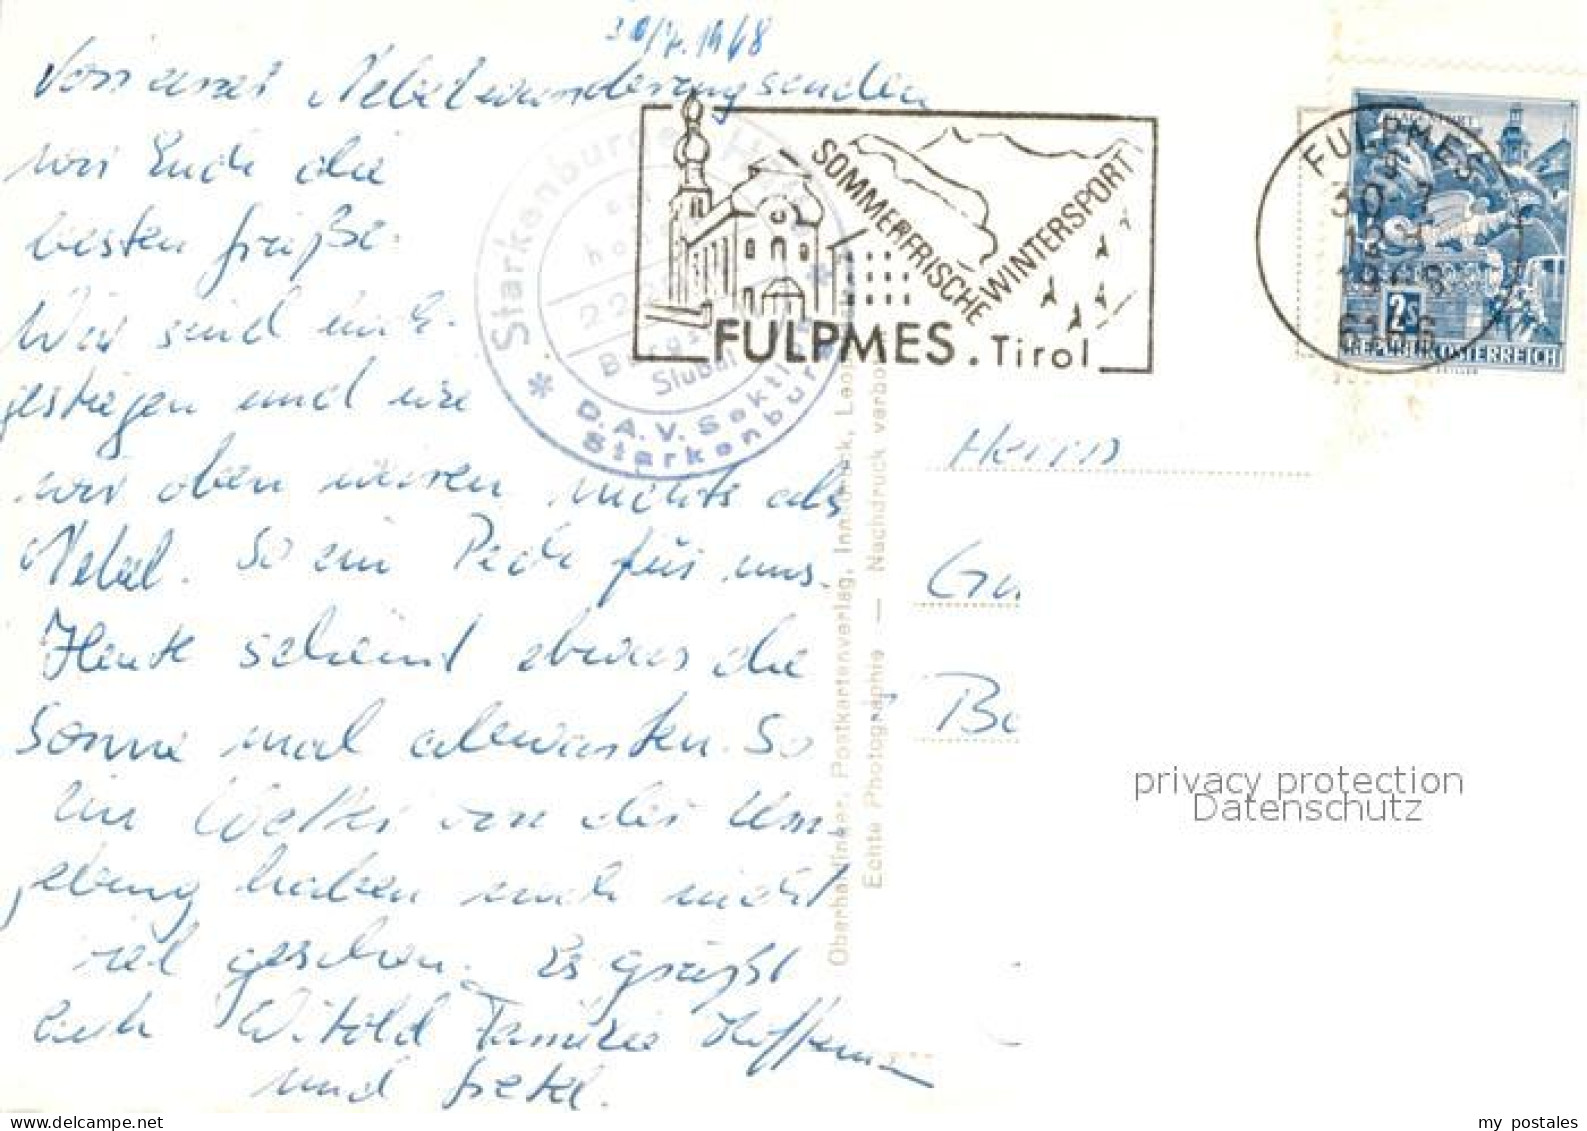 30/7.1968
Von unser Nebelwanderung senden
wir Euch die
besten Grüße.
Wir sind auf-
gestiegen und wie
wir oben waren nichts als
Nebel. So ein Pech für uns.
Heute scheint etwas die
Sonne mal abwarten. So
von der Um-
gebung haben auch nicht
viel gesehen. Es grüßt
euch Witold Familie Hoffmann
und
Starkenburger Hütte
2229
Stubai
D.A.V. Sektion
Starkenburg
SOMMERFRISCHE
WINTERSPORT
FULPMES.Tirol
FULPMES
30.-7
1968
6166
2s
REPUBLIK ÖSTERREICH
Oberhallinker, Postkartenverlag, Innsbruck, Leop
Echte Photographie — Nachdruck verbo
Herrn
Gu
Be
privacy protection
Datenschutz
my postales